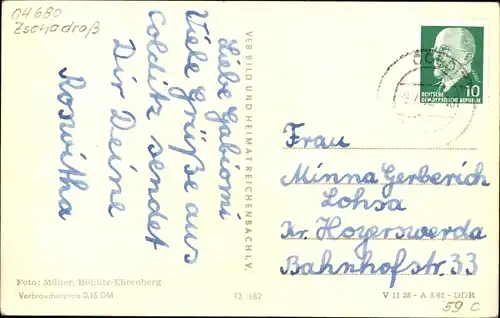 04680
Zschadraß
Liebe Gabiomi
Viele Grüße aus
Colditz sendet
Dir Deine
Roswitha
Foto: Müller, Böhlitz-Ehrenberg
Verbraucherpreis 0,15 DM
VEB BILD UND HEIMAT REICHENBACH I. V.
10
DEUTSCHE
DEMOKRATISCHE REPUBLIK
Frau
Minna Gerberich
Lohsa
Kr. Hoyerswerda
Bahnhofstr. 33
V 11 28 - A 3/62 - DDR
59 c